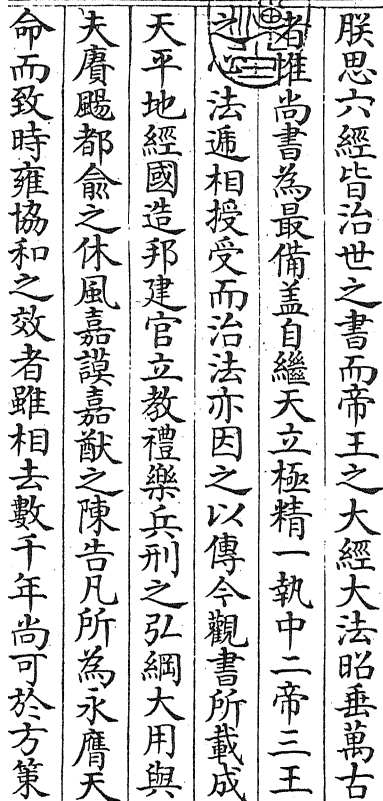 朕思六經皆治世之書而帝王之大經大法昭垂萬古
者惟尚書為最備盖自繼天立極精一執中二帝三王
之心法遞相授受而治法亦因之以傳今觀書所載成
天平地經國造邦建官立教禮樂兵刑之弘綱大用與
夫賡颺都俞之休風嘉謨嘉猷之陳告凡所為永膺天
命而致時雍協和之效者雖相去數千年尚可於方策